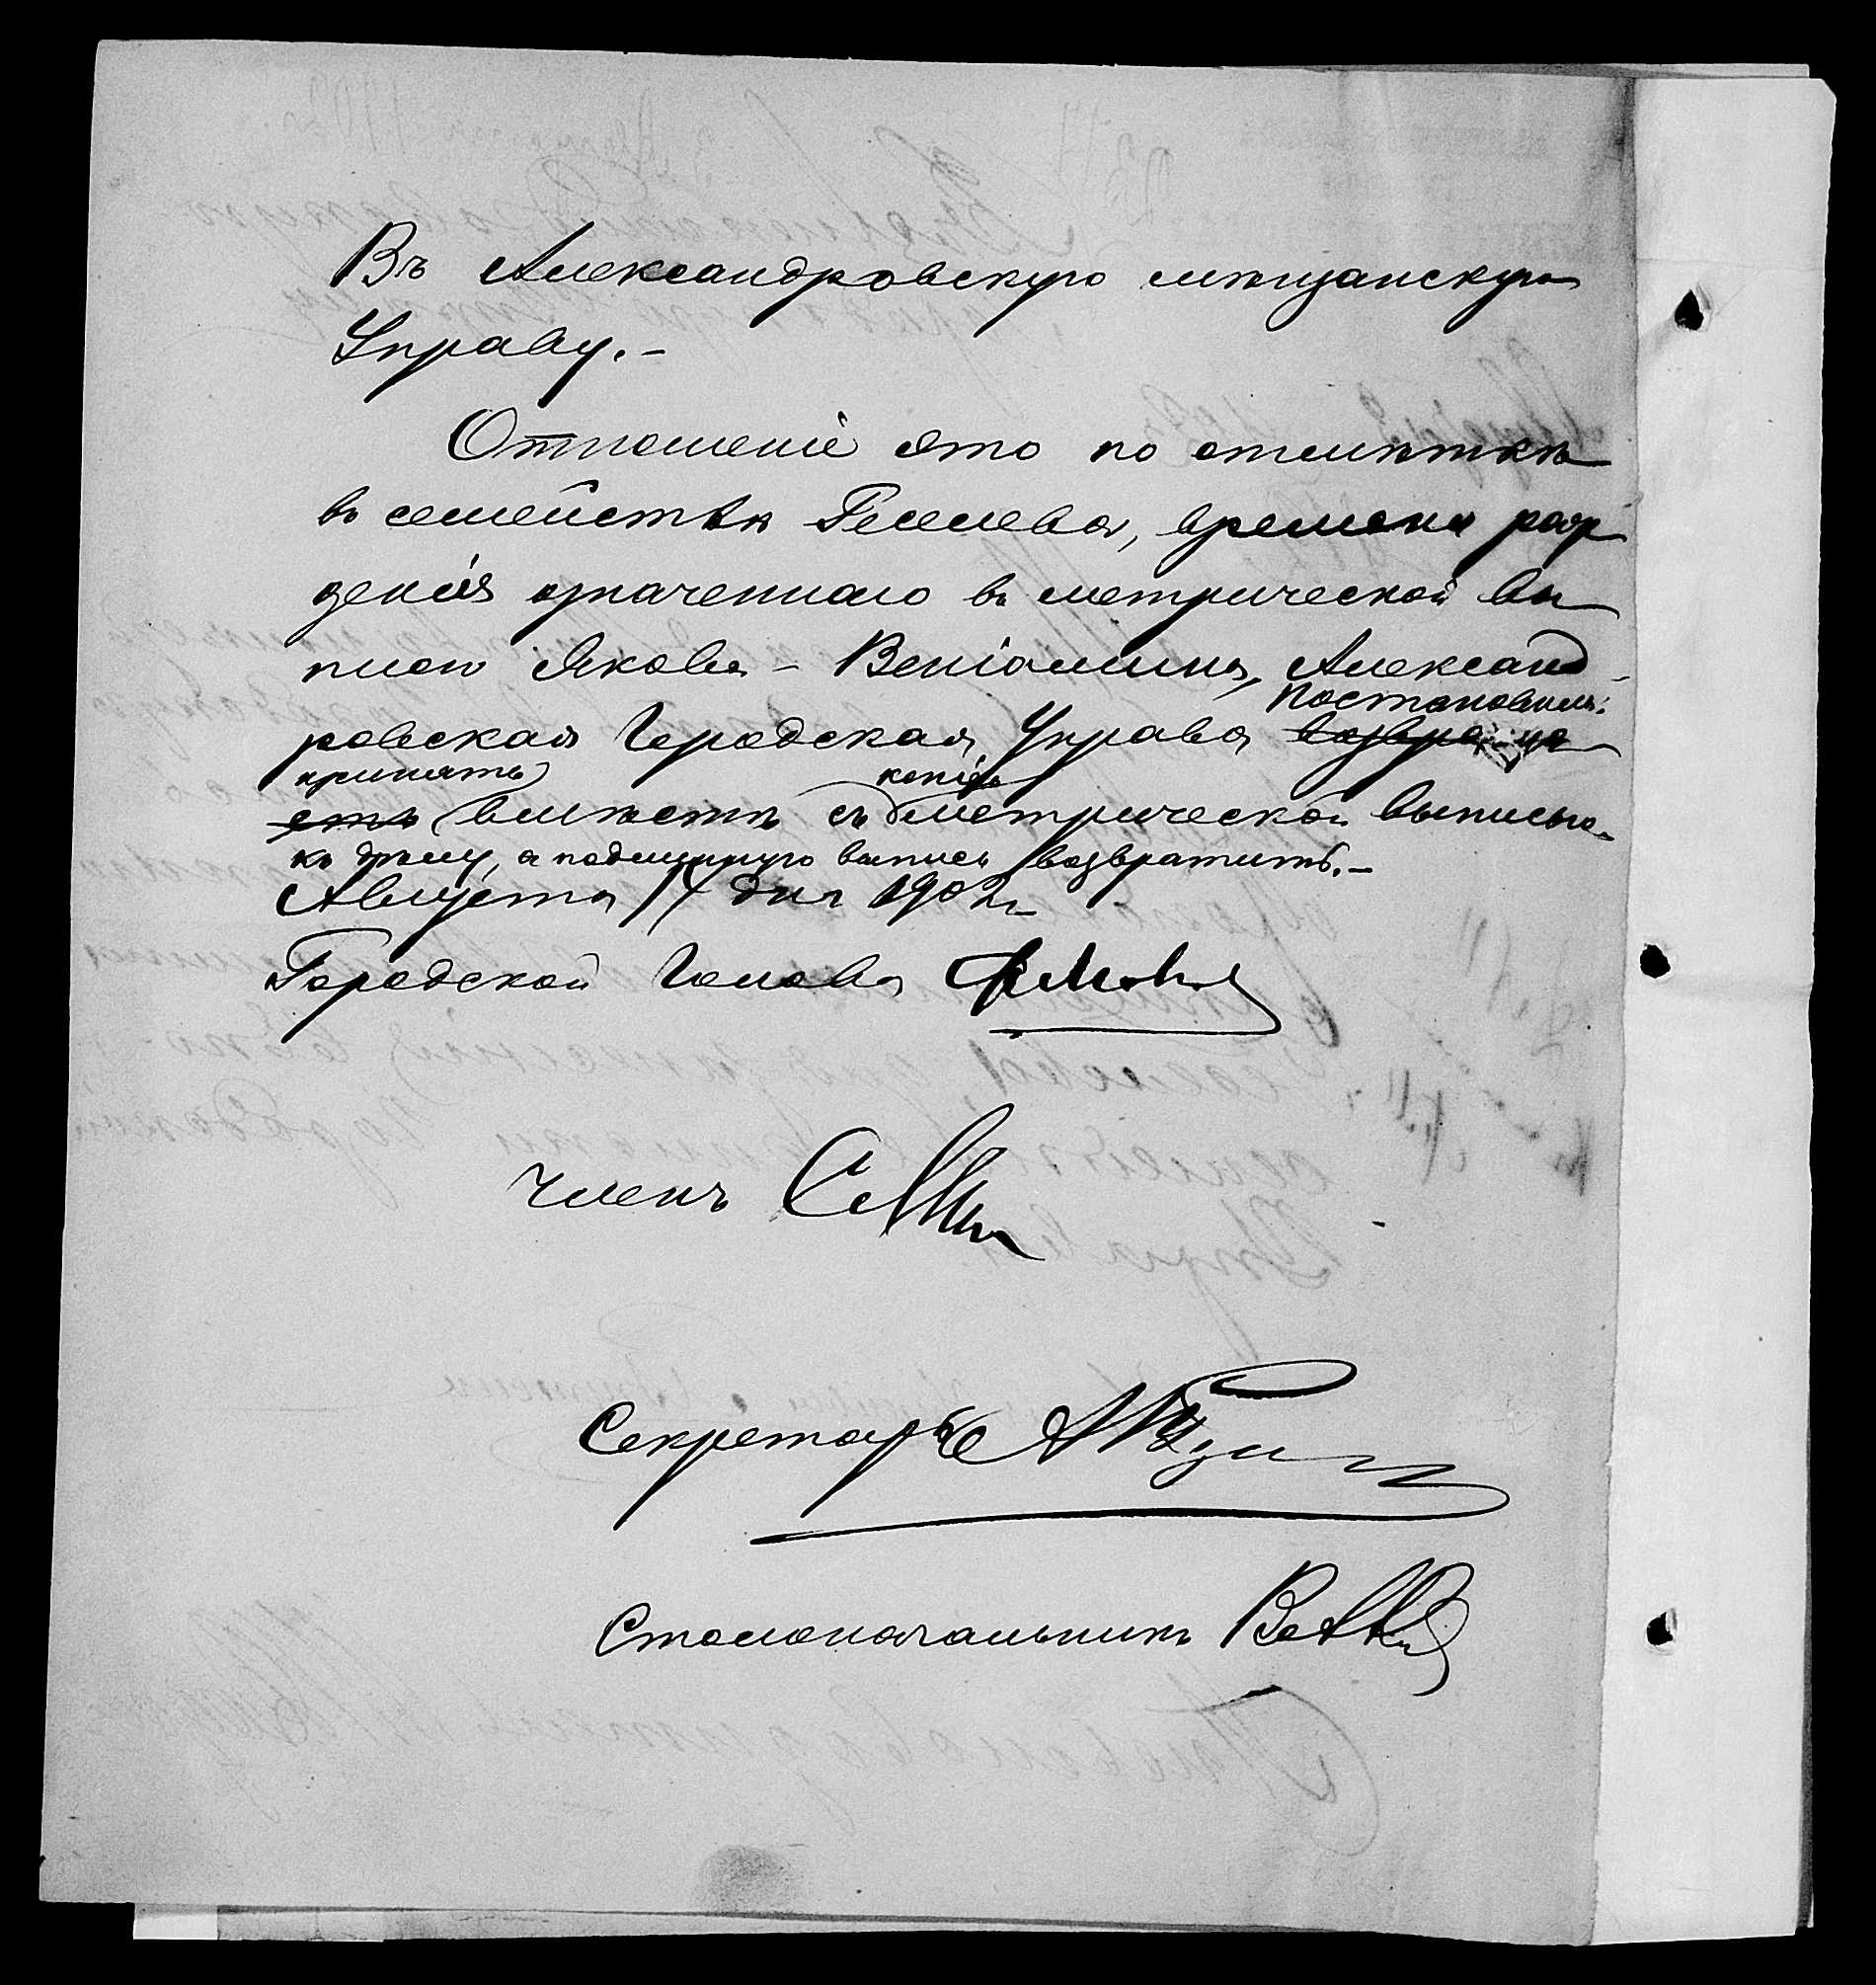 Въ Александровскую мѣщанскую
Управу.-
Отношеніе это по отмѣткѣ
въ семействѣ Геселева, времени рож
денія означеннаго въ метрической вы
писи Якова - Веніамина, Александ-
Постановила:
ровская Городская Управа возвраща
принять копію
етъ вмѣстѣ съ метрической выписью
къ дѣлу, а подлинную выпись возвратить.-
Августа 17 дня 1902 г.
Городской Голова
Членъ
Секретарь
Столоначальникъ